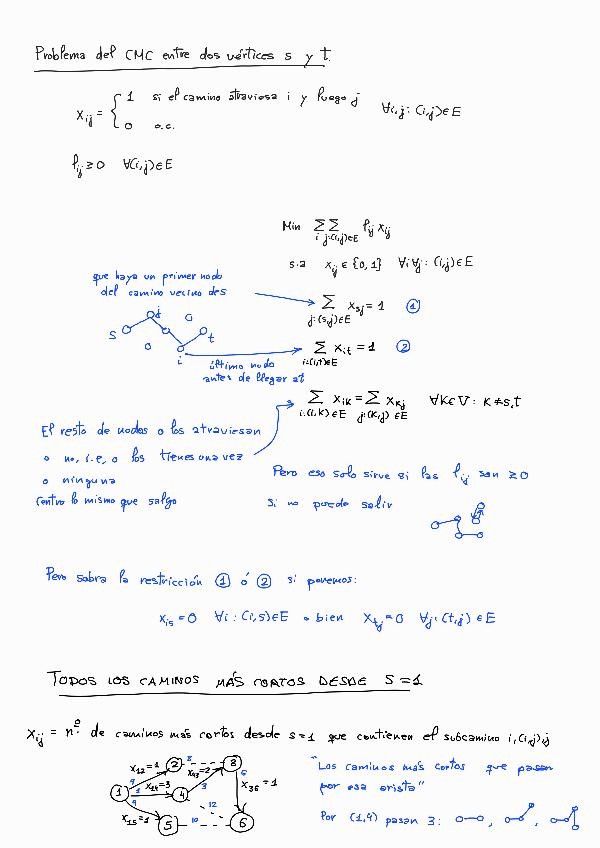 Problema del CMC entre dos vértices s y t.
x_ij = { 1 si el camino atraviesa i y luego j ∀i,j : (i,j)∈E
0 o.c.
l_ij ≥ 0 ∀(i,j)∈E
Min Σ_i Σ_{j:(i,j)∈E} l_ij x_ij
s.a x_ij ∈ {0,1} ∀i∀j : (i,j)∈E
que haya un primer nodo
del camino vecino de s
Σ_{j:(s,j)∈E} x_sj = 1 ①
s j i t
Σ_{i:(i,t)∈E} x_it = 1 ②
último nodo
antes de llegar a t
Σ_{i:(i,k)∈E} x_ik = Σ_{j:(k,j)∈E} x_kj ∀k∈V : k≠s,t
El resto de nodos o los atraviesan
o no, i.e, o los tienes una vez
o ninguna
Centro lo mismo que salgo
Pero eso solo sirve si las l_ij son ≥0
si no puede salir
Pero sobra la restricción ① ó ② si ponemos:
x_is = 0 ∀i : (i,s)∈E o bien x_tj = 0 ∀j : (t,j)∈E
TODOS LOS CAMINOS MÁS CORTOS DESDE S=1
x_ij = n.º de caminos más cortos desde s=1 que contienen el subcamino i,(i,j),j
x_12=1 2 8 3
x_43=2 6
1 9 x_14=3 4 3 x_36=1
9 12
x_15=1 5 10 6
"Los caminos más cortos que pasan
por esa arista"
Por (1,4) pasan 3: , ,